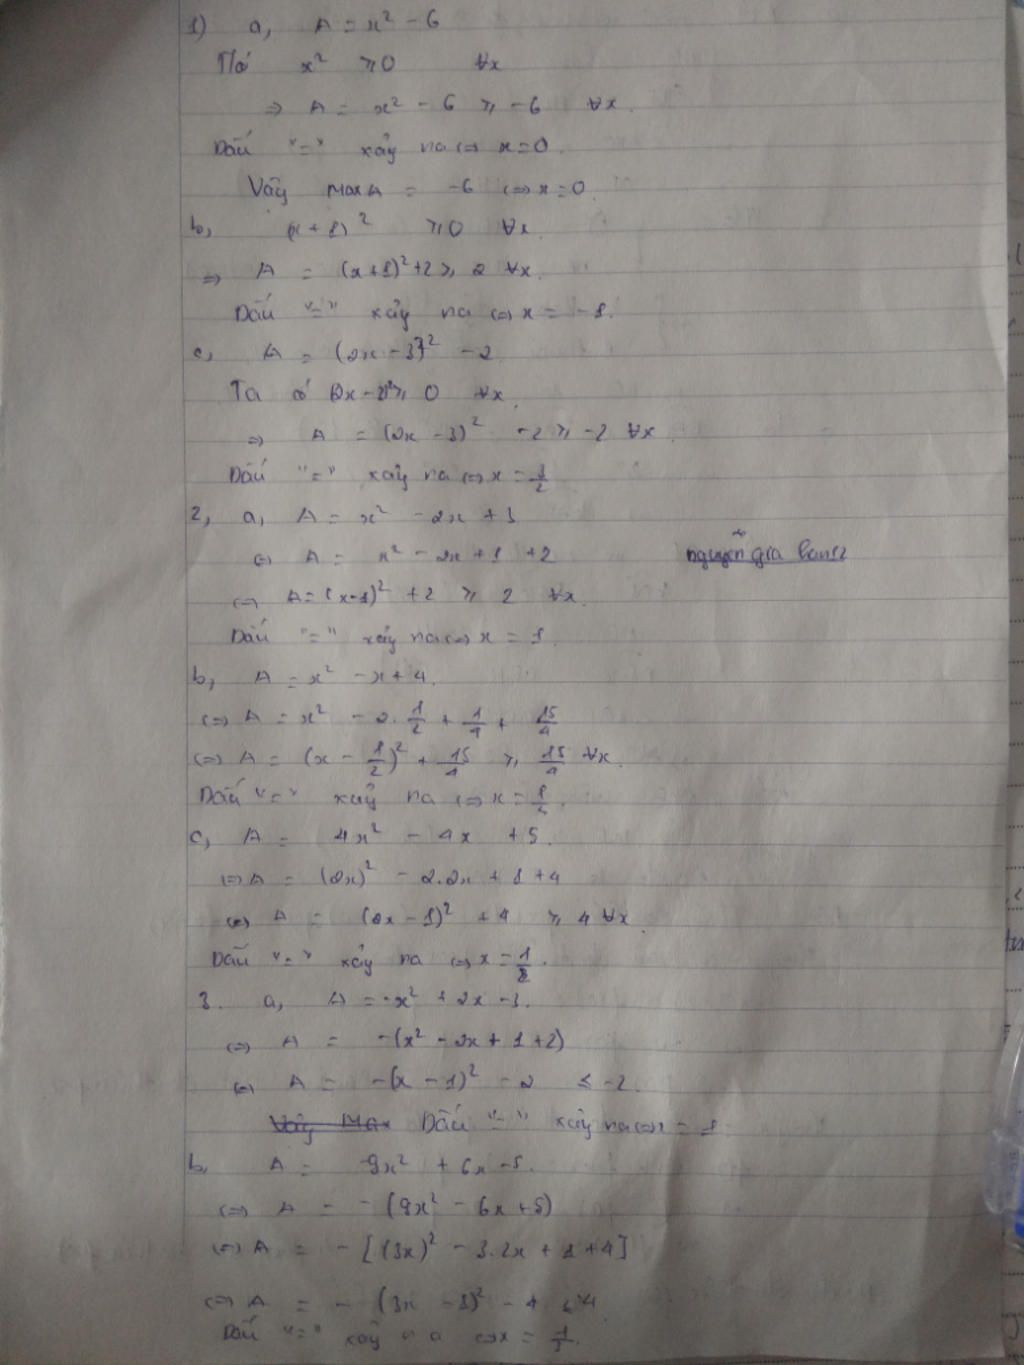 1) a, A = x² - 6
Ta có x² ⩾ 0 ∀x
=> A = x² - 6 ⩾ -6 ∀x.
Dấu "=" xảy ra <=> x = 0.
Vậy Max A = -6 <=> x = 0.
b, (x + 1)² ⩾ 0 ∀x.
=> A = (x+1)² + 2 ⩾ 2 ∀x.
Dấu "=" xảy ra <=> x = -1.
c, A = (2x - 3)² - 2
Ta có (2x - 3)² ⩾ 0 ∀x.
=> A = (2x - 3)² - 2 ⩾ -2 ∀x.
Dấu "=" xảy ra <=> x = 3/2
2, a, A = x² - 2x + 3
<=> A = x² - 2x + 1 + 2
nguyễn gia
<=> A = (x-1)² + 2 ⩾ 2 ∀x.
Dấu "=" xảy ra <=> x = 1.
b, A = x² - x + 4.
<=> A = x² - 2. 1/2 + 1/4 + 15/4
<=> A = (x - 1/2)² + 15/4 ⩾ 15/4 ∀x.
Dấu "=" xảy ra <=> x = 1/2.
c, A = 4x² - 4x + 5.
<=> A = (2x)² - 2.2x + 1 + 4
<=> A = (2x - 1)² + 4 ⩾ 4 ∀x
Dấu "=" xảy ra <=> x = 1/2.
3. a, A = -x² + 2x - 3.
<=> A = -(x² - 2x + 1 + 2)
<=> A = -(x - 1)² - 2 ≤ -2.
Vậy Max Dấu "=" xảy ra <=> x = 1
b, A = -9x² + 6x - 5.
<=> A = -(9x² - 6x + 5)
<=> A = -[(3x)² - 3.2x + 1 + 4]
<=> A = -(3x - 1)² - 4 ≤ -4
Dấu "=" xảy ra <=> x = 1/3.